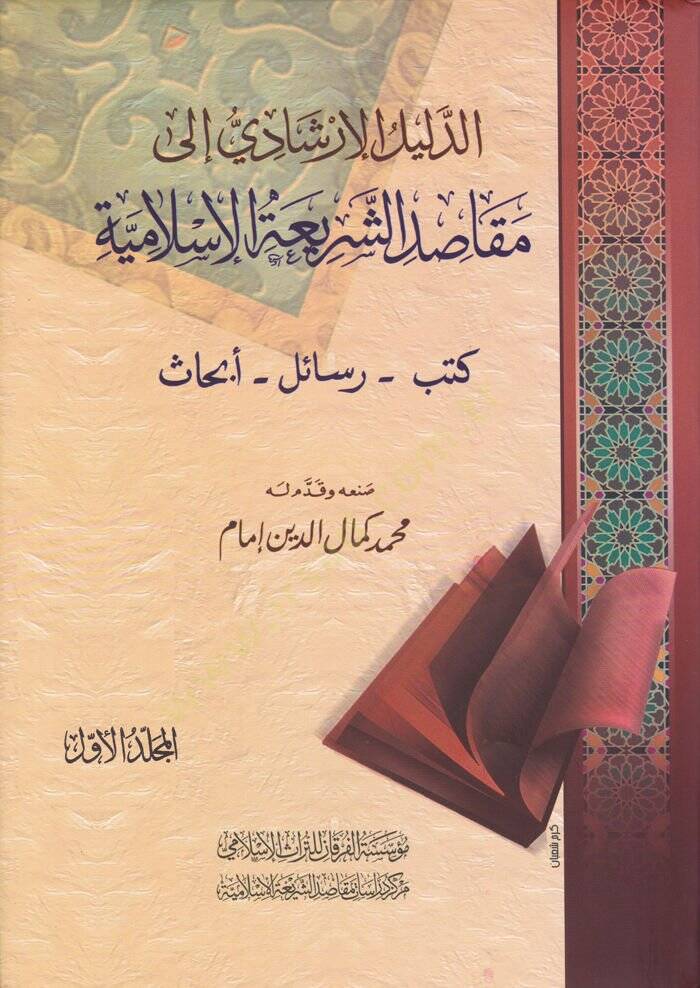 الدَّليلُ الإرْشَادِيُّ إلى
مَقَاصِدِ الشَّرِيعَةِ الإسْلاَمِيَّةِ
كتب - رسائل - أبحاث
صَنعه وقَدَّم لَه
محمد كمال الدين إمام
المجلّدُ الأوّل
مؤسَسَة الفرقان للتراث الإسلامي
مركز دراسات مقاصد الشريعة الإسلامية
كرم شعبان